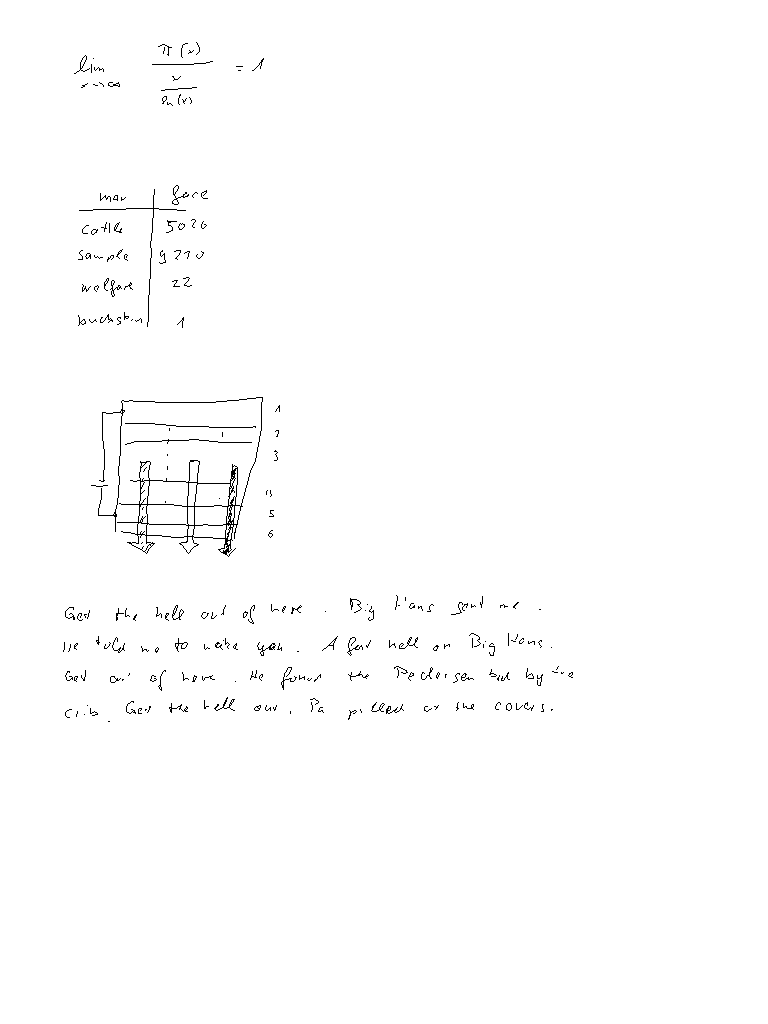 lim x→∞ π(x) / (x / ln(x)) = 1
mar | fare
cattle | 5020
sample | 9210
welfare | 22
1
1
2
3
4
5
6
Get the hell out of here. Big Hans sent me.
He told me to wake you. A fat hell on Big Hans.
Get out of here. He found the Pedersen kid by the
crib. Get the hell out. Pa pulled at the covers.